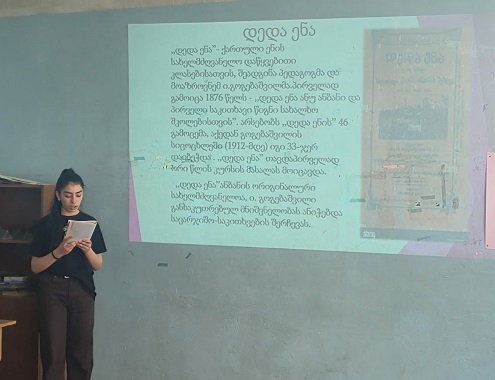 დედა ენა
„დედა ენა”- ქართული ენის
სახელმძღვანელო დაწყებითი
კლასებისათვის, შეადგინა პედაგოგმა და
მოაზროვნემ ი.გოგებაშვილმა.პირველად
გამოიცა 1876 წელს - „დედა ენა ანუ ანბანი და
პირველი საკითხავი წიგნი სახალხო
შკოლებისთვის”. არსებობს „დედა ენის” 46
გამოცემა, აქედან გოგებაშვილის
სიცოცხლეში (1912-მდე) იგი 33-ჯერ
დაიბეჭდა. „დედა ენა” თავდაპირველად
ორი წლის კურსის მასალას მოიცავდა.
„დედა ენა”ანბანის ორიგინალური
სახელმძღვანელოა, ი. გოგებაშვილი
განსაკუთრებულ მნიშვნელობას ანიჭებდა
სავარჯიშო-საკითხების შერჩევას.